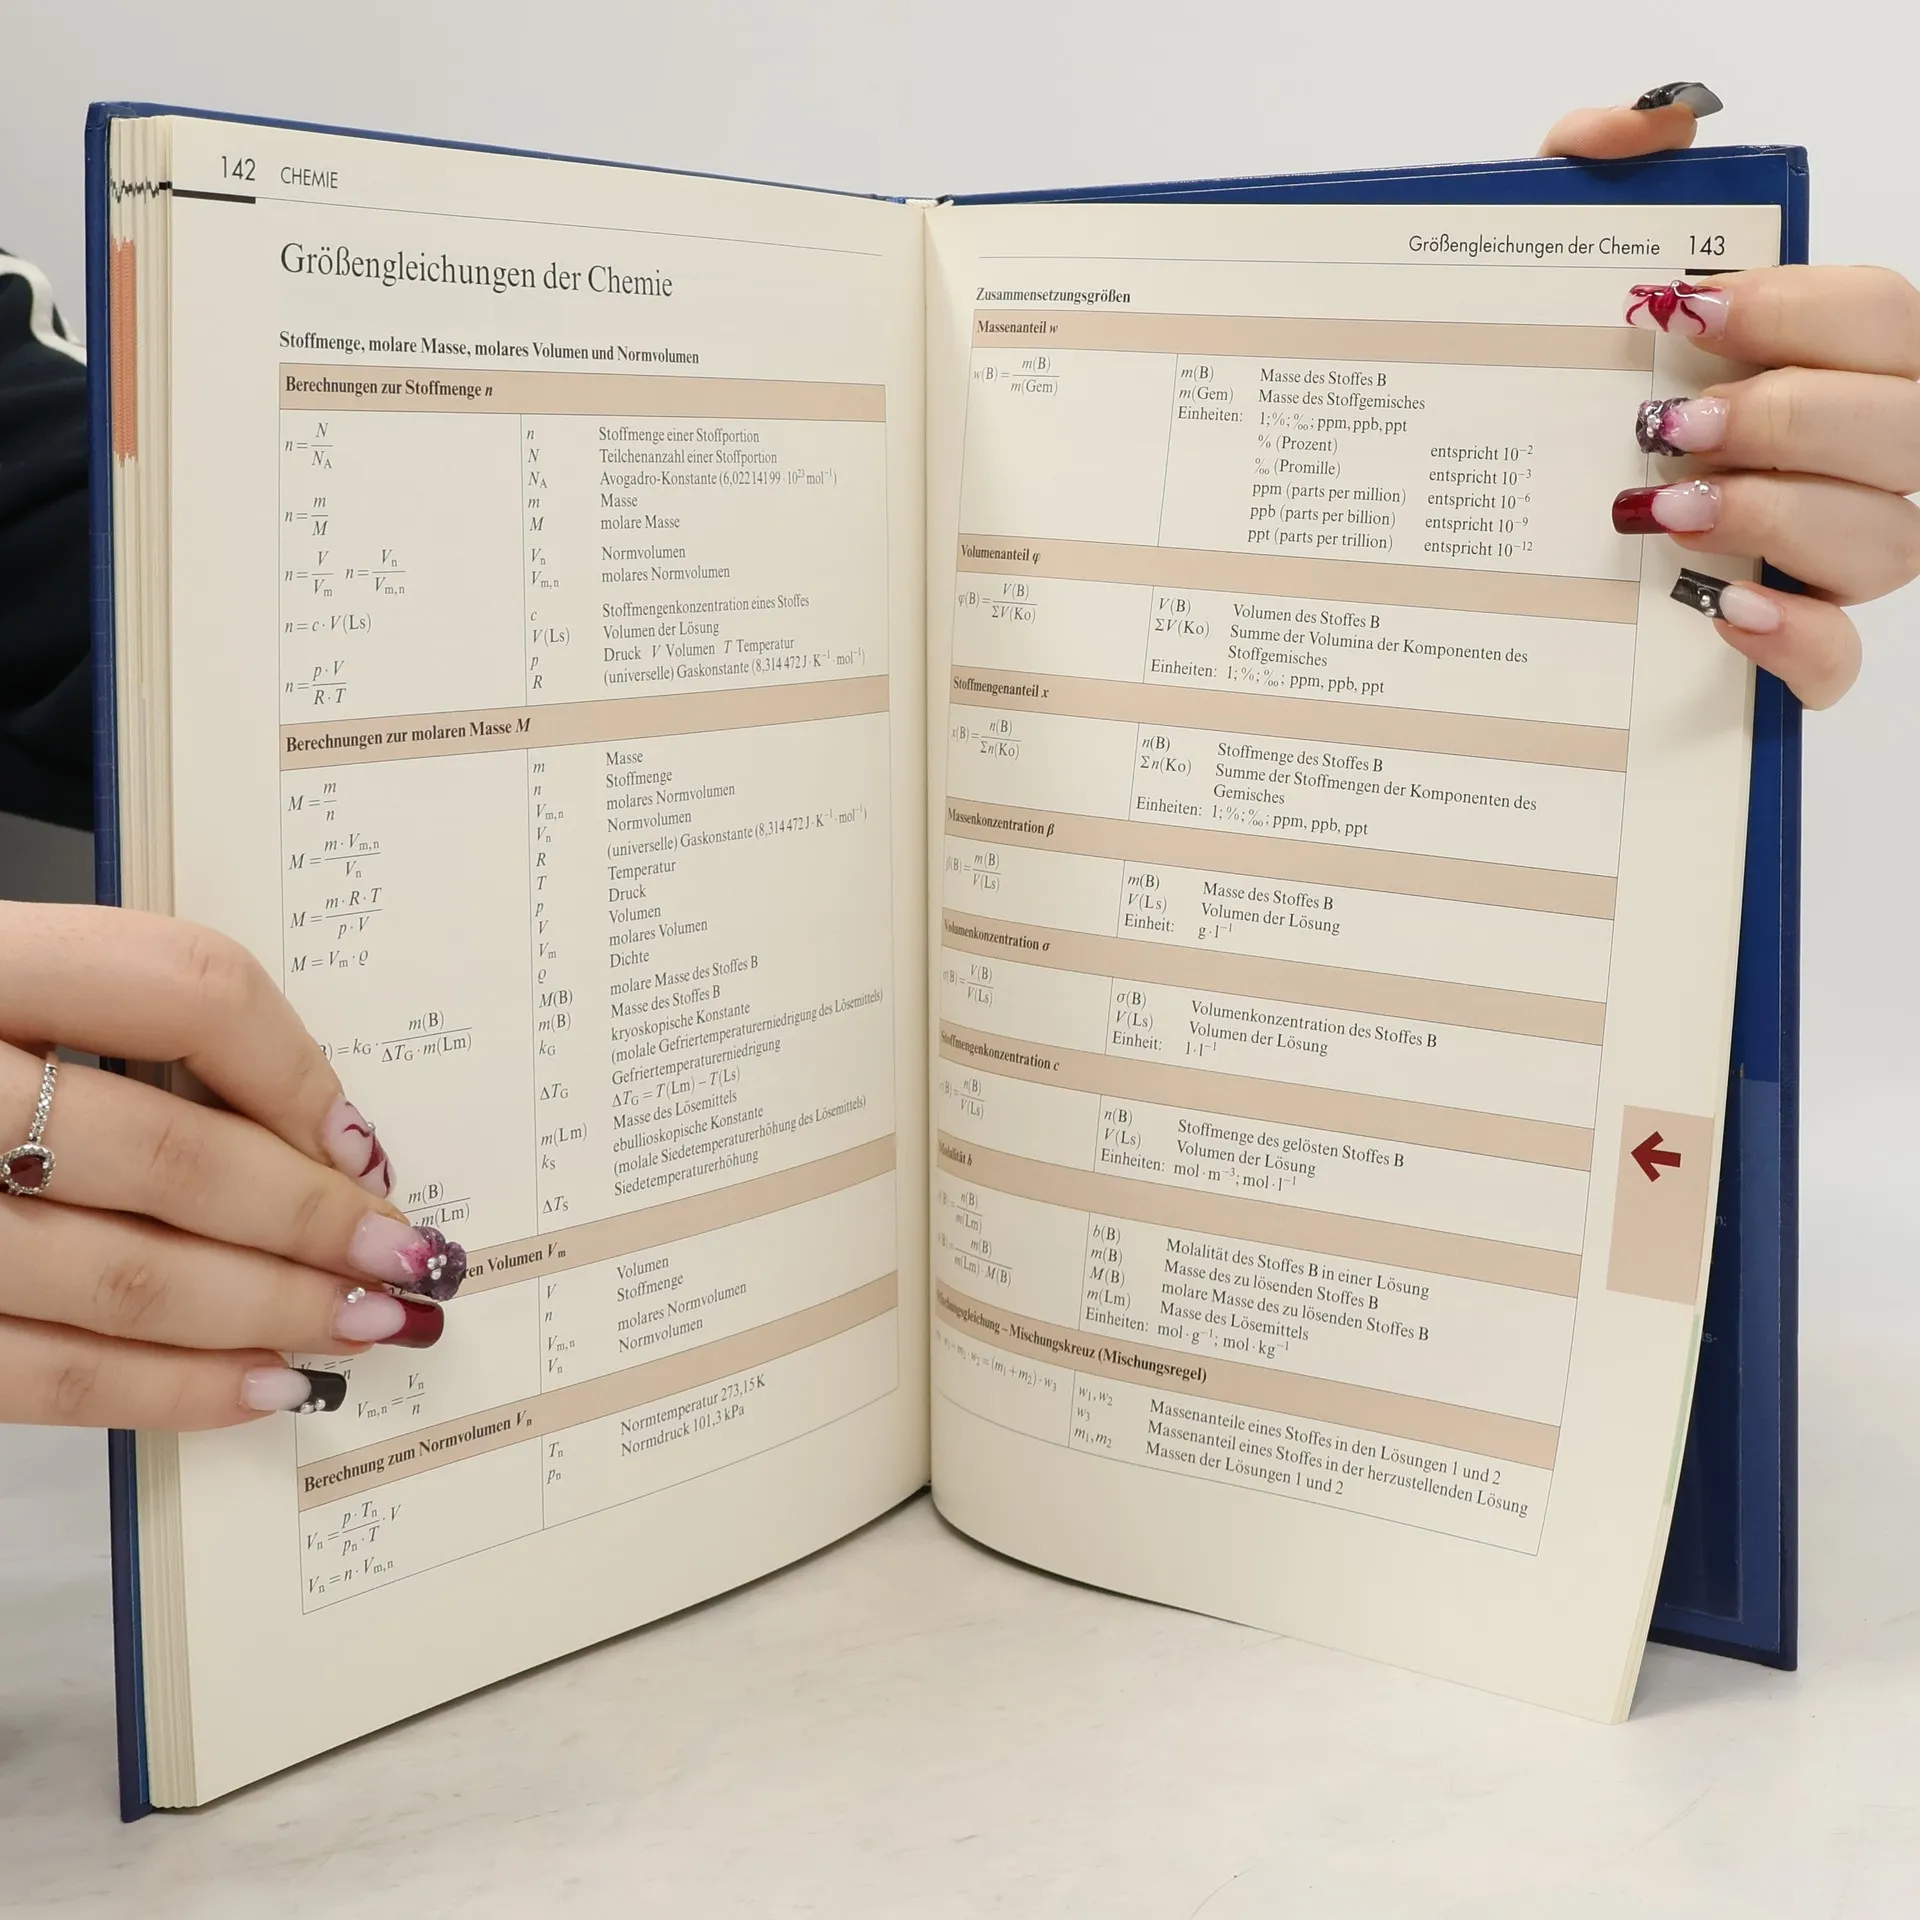 142 CHEMIE
Größengleichungen der Chemie
Stoffmenge, molare Masse, molares Volumen und Normvolumen
Berechnungen zur Stoffmenge n
n = N/N_A
n = m/M
n = V/V_m n = V_n/V_m,n
n = c · V(Ls)
n = p · V/R · T
n Stoffmenge einer Stoffportion
N Teilchenanzahl einer Stoffportion
N_A Avogadro-Konstante (6,02214199 · 10²³ mol⁻¹)
m Masse
M molare Masse
V_n Normvolumen
V_m,n molares Normvolumen
c Stoffmengenkonzentration eines Stoffes
V(Ls) Volumen der Lösung
p Druck V Volumen T Temperatur
R (universelle) Gaskonstante (8,314472 J · K⁻¹ · mol⁻¹)
Berechnungen zur molaren Masse M
M = m/n
M = m · V_m,n/V_n
M = m · R · T/p · V
M = V_m · ϱ
) = k_G · m(B)/ΔT_G · m(Lm)
m(B)/· m(Lm)
m Masse
n Stoffmenge
V_m,n molares Normvolumen
V_n Normvolumen
R (universelle) Gaskonstante (8,314472 J · K⁻¹ · mol⁻¹)
T Temperatur
p Druck
V Volumen
V_m molares Volumen
ϱ Dichte
M(B) molare Masse des Stoffes B
m(B) Masse des Stoffes B
k_G kryoskopische Konstante
(molale Gefriertemperaturerniedrigung des Lösemittels)
ΔT_G Gefriertemperaturerniedrigung
ΔT_G = T(Lm) − T(Ls)
m(Lm) Masse des Lösemittels
k_S ebullioskopische Konstante
(molale Siedetemperaturerhöhung des Lösemittels)
ΔT_S Siedetemperaturerhöhung
ren Volumen V_m
V_m,n = V_n/n
V Volumen
n Stoffmenge
V_m,n molares Normvolumen
V_n Normvolumen
Berechnung zum Normvolumen V_n
V_n = p · T_n/p_n · T · V
V_n = n · V_m,n
T_n Normtemperatur 273,15 K
p_n Normdruck 101,3 kPa
Größengleichungen der Chemie 143
Zusammensetzungsgrößen
Massenanteil w
w(B) = m(B)/m(Gem)
m(B) Masse des Stoffes B
m(Gem) Masse des Stoffgemisches
Einheiten: 1; %; ‰; ppm, ppb, ppt
% (Prozent) entspricht 10⁻²
‰ (Promille) entspricht 10⁻³
ppm (parts per million) entspricht 10⁻⁶
ppb (parts per billion) entspricht 10⁻⁹
ppt (parts per trillion) entspricht 10⁻¹²
Volumenanteil φ
φ(B) = V(B)/ΣV(Ko)
V(B) Volumen des Stoffes B
ΣV(Ko) Summe der Volumina der Komponenten des
Stoffgemisches
Einheiten: 1; %; ‰; ppm, ppb, ppt
Stoffmengenanteil x
x(B) = n(B)/Σn(Ko)
n(B) Stoffmenge des Stoffes B
Σn(Ko) Summe der Stoffmengen der Komponenten des
Gemisches
Einheiten: 1; %; ‰; ppm, ppb, ppt
Massenkonzentration β
β(B) = m(B)/V(Ls)
m(B) Masse des Stoffes B
V(Ls) Volumen der Lösung
Einheit: g · l⁻¹
Volumenkonzentration σ
σ(B) = V(B)/V(Ls)
σ(B) Volumenkonzentration des Stoffes B
V(Ls) Volumen der Lösung
Einheit: l · l⁻¹
Stoffmengenkonzentration c
c(B) = n(B)/V(Ls)
n(B) Stoffmenge des gelösten Stoffes B
V(Ls) Volumen der Lösung
Einheiten: mol · m⁻³; mol · l⁻¹
Molalität b
n(B)/m(Lm)
m(B)/m(Lm) · M(B)
b(B) Molalität des Stoffes B in einer Lösung
m(B) Masse des zu lösenden Stoffes B
M(B) molare Masse des zu lösenden Stoffes B
m(Lm) Masse des Lösemittels
Einheiten: mol · g⁻¹; mol · kg⁻¹
Mischungsgleichung – Mischungskreuz (Mischungsregel)
· w₂ = (m₁ + m₂) · w₃
w₁, w₂ Massenanteile eines Stoffes in den Lösungen 1 und 2
w₃ Massenanteil eines Stoffes in der herzustellenden Lösung
m₁, m₂ Massen der Lösungen 1 und 2